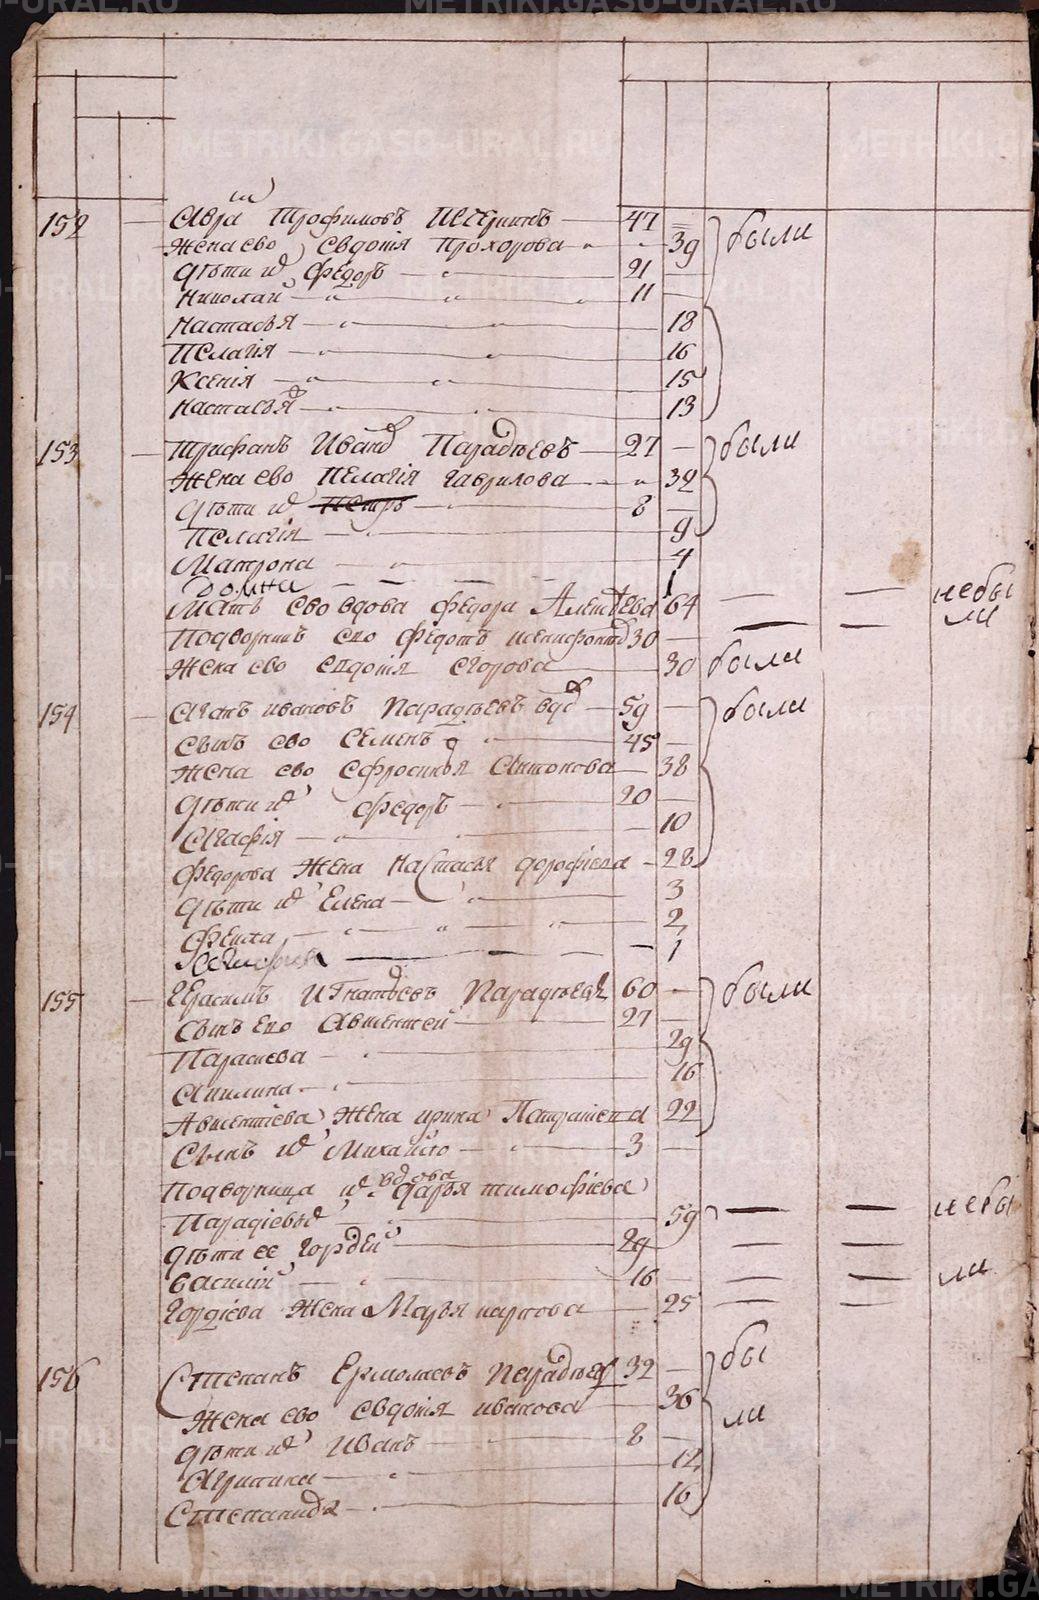 METRIKI.GASO-URAL.RU
152 Трофимовъ 47
Жена ево Евдотія Прохорова 39 были
Дѣти их Федоръ 21
Николай 11
Настасья 18
Пелагія 16
Ксенія 15
Настасья 13
153 Трифанъ Иванов Парадѣевъ 27 были
Жена ево Пелагія Гаврилова 32
Дѣти их Петръ 8
Пелагія 9
Матрона 4
Домна 1
Мать ево вдова Федора 64 небы
ли
Подворникъ ево Федотъ 30
Жена ево Евдотія Егорова 30 были
154 Агапъ Ивановъ Парадѣевъ вдов 59 были
Сынъ ево Семенъ 45
Жена ево Ефросинья Антонова 38
Дѣти их Федоръ 20
Агафія 10
Федорова Жена Настасья Дорофіева 28
Дѣти их Елена 3
Фекла 2
1
155 Герасимъ Игнатьевъ Парадѣевъ 60 были
Сынъ ево Авксентей 27
29
Акилина 16
Авксентіева Жена Ирина 22
Сынъ их Михайло 3
вдова
Подворница их Дарья Тимофіева
59 небы
Дѣти ее Гордей 29
Василий 16 ли
Гордіева Жена Марья Карпова 25
156 Степанъ Ермолаевъ Парадѣев 32 бы
Жена ево Евдотія Иванова 36 ли
Дѣти их Иванъ 8
Агрипина 12
Степанида 16
METRIKI.GASO-URAL.RU